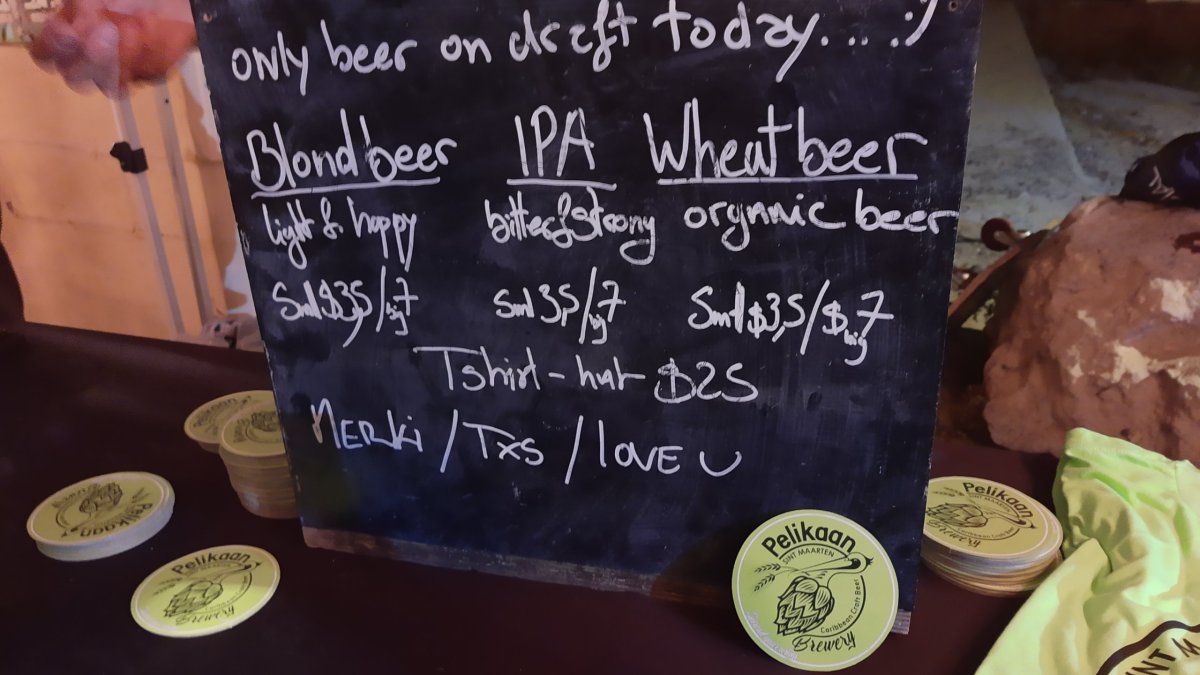 only beer on draft today.... :)
Blond beer IPA Wheat beer
light & hoppy bitter & strong orgnnic beer
Sml $3,5/big 7 Sml 3,5/big 7 Sml $3,5/$big 7
Tshirt - hat $25
MERKi / Txs / love U
Pelikaan
SINT MAARTEN
Caribbean Craft Beer
Brewery
Pelikaan
SINT MAARTEN
Caribbean Craft Beer
Brewery
Pelikaan
Brewery
Pelikaan
Brewery